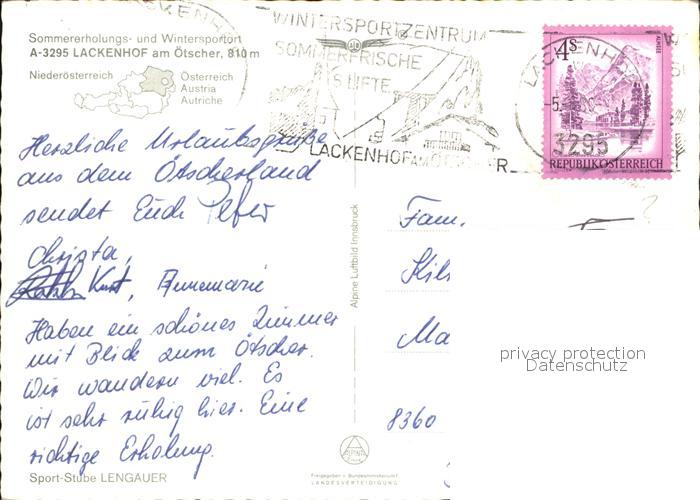 Sommererholungs- und Wintersportort
A-3295 LACKENHOF am Ötscher, 810 m
Niederösterreich
Österreich
Austria
Autriche
WINTERSPORTZENTRUM
SOMMERFRISCHE
5 LIFTE
LACKENHOF AM ÖTSCHER
LACKENHOF
3295
4 S
ALMSEE
REPUBLIK ÖSTERREICH
Herzliche Urlaubsgrüße
aus dem Ötscherland
sendet Euch Peter
Christa,
Kurt, Annemarie
Haben ein schönes Zimmer
mit Blick zum Ötscher.
Wir wandern viel. Es
ist sehr ruhig hier. Eine
richtige Erholung.
Sport-Stube LENGAUER
Alpine Luftbild Innsbruck
ALPINE
Freigegeben v. Bundesministerium f.
LANDESVERTEIDIGUNG
Fam.
Ma
8360
privacy protection
Datenschutz